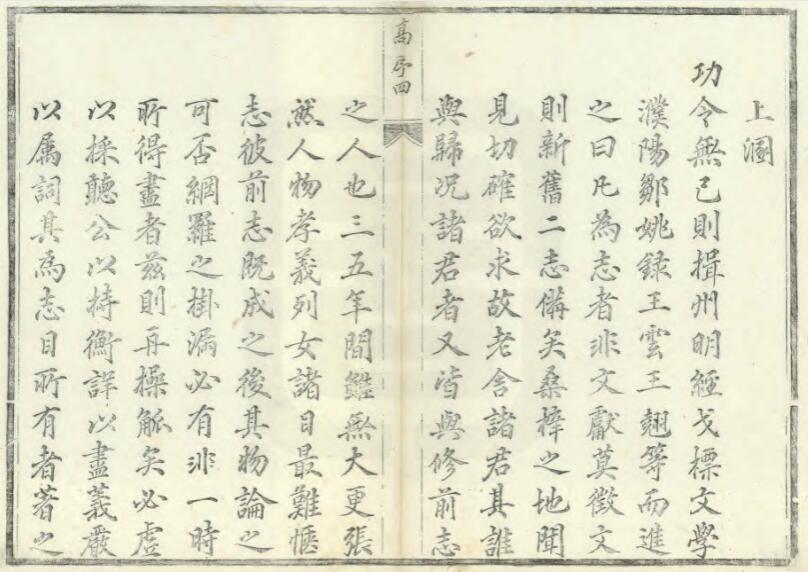 上溷
功令無已則揖州明經戈標文學
濮陽鄒姚録王雲王翹等而進
之曰凡為志者非文獻莫徵文
則新舊二志俻矣桑梓之地聞
見切確欲求故老舍諸君其誰
與歸况諸君者又皆與修前志
高序四
之人也三五年間鑑無大更張
然人物孝義列女諸目最難愜
志彼前志既成之後其物論之
可否綱羅之掛漏必有非一時
所得盡者茲則再操觚矣必虚
以採聽公以持衡詳以盡義嚴
以属詞其為志目所有者著之